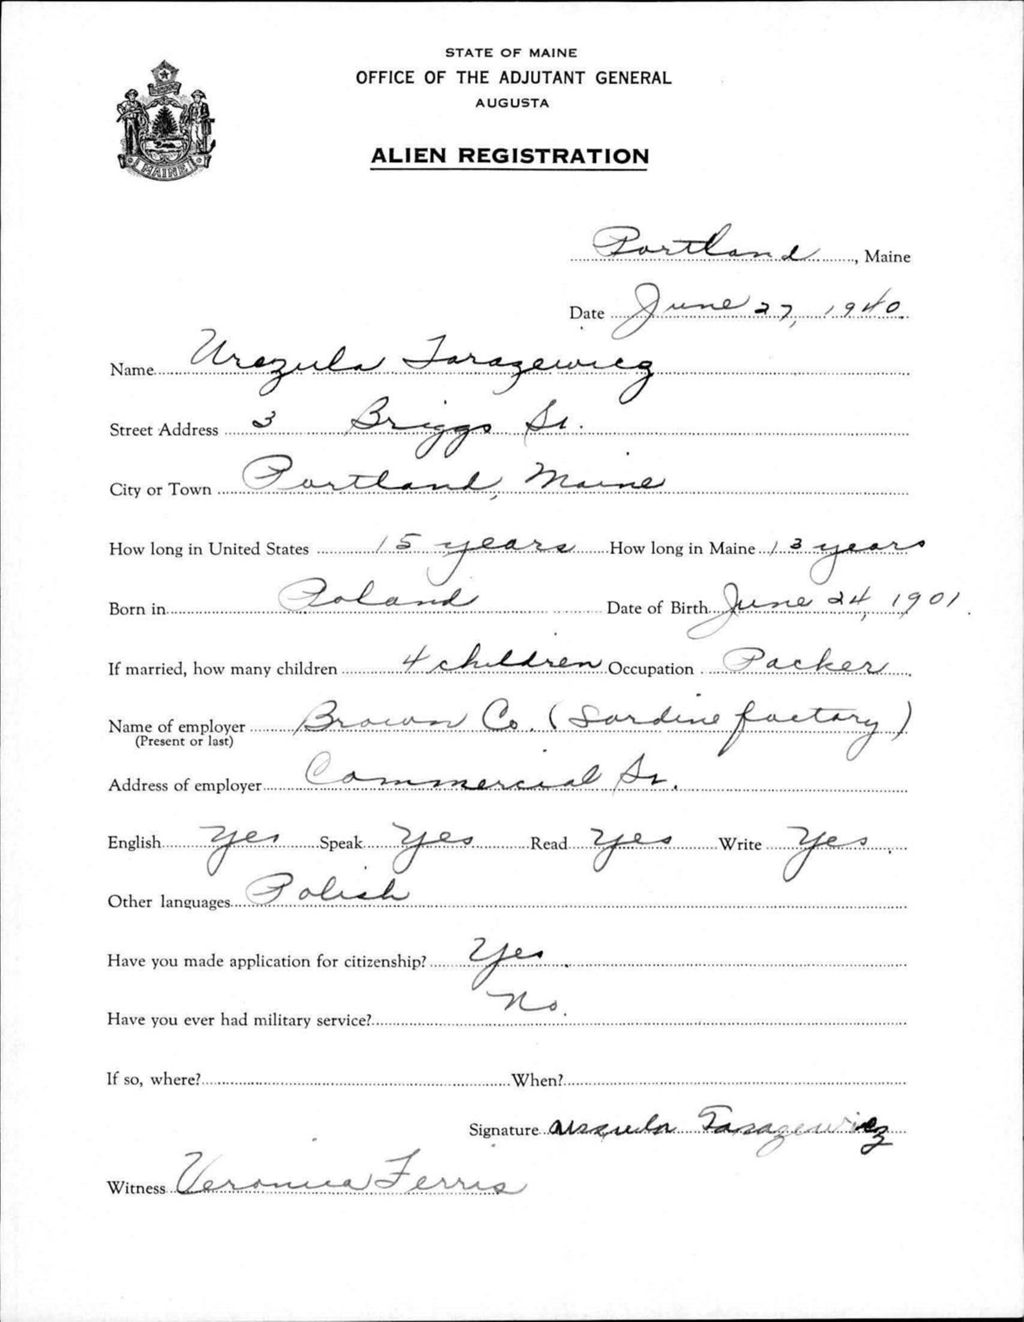 STATE OF MAINE
OFFICE OF THE ADJUTANT GENERAL
AUGUSTA
ALIEN REGISTRATION
MAINE
Portland, Maine
Date June 27, 1940.
Name Urszula Tarazewicz
Street Address 3 Briggs St.
City or Town Portland, Maine
How long in United States 15 years How long in Maine 13 years
Born in Poland Date of Birth June 24, 1901.
If married, how many children 4 children Occupation Packer
Name of employer Brown Co. (Sardine factory)
(Present or last)
Address of employer Commercial St.
English Yes Speak Yes Read Yes Write Yes.
Other languages Polish
Have you made application for citizenship? Yes.
Have you ever had military service? No.
If so, where? When?
Signature Urszula Tarazewicz
Witness Veronica Ferris